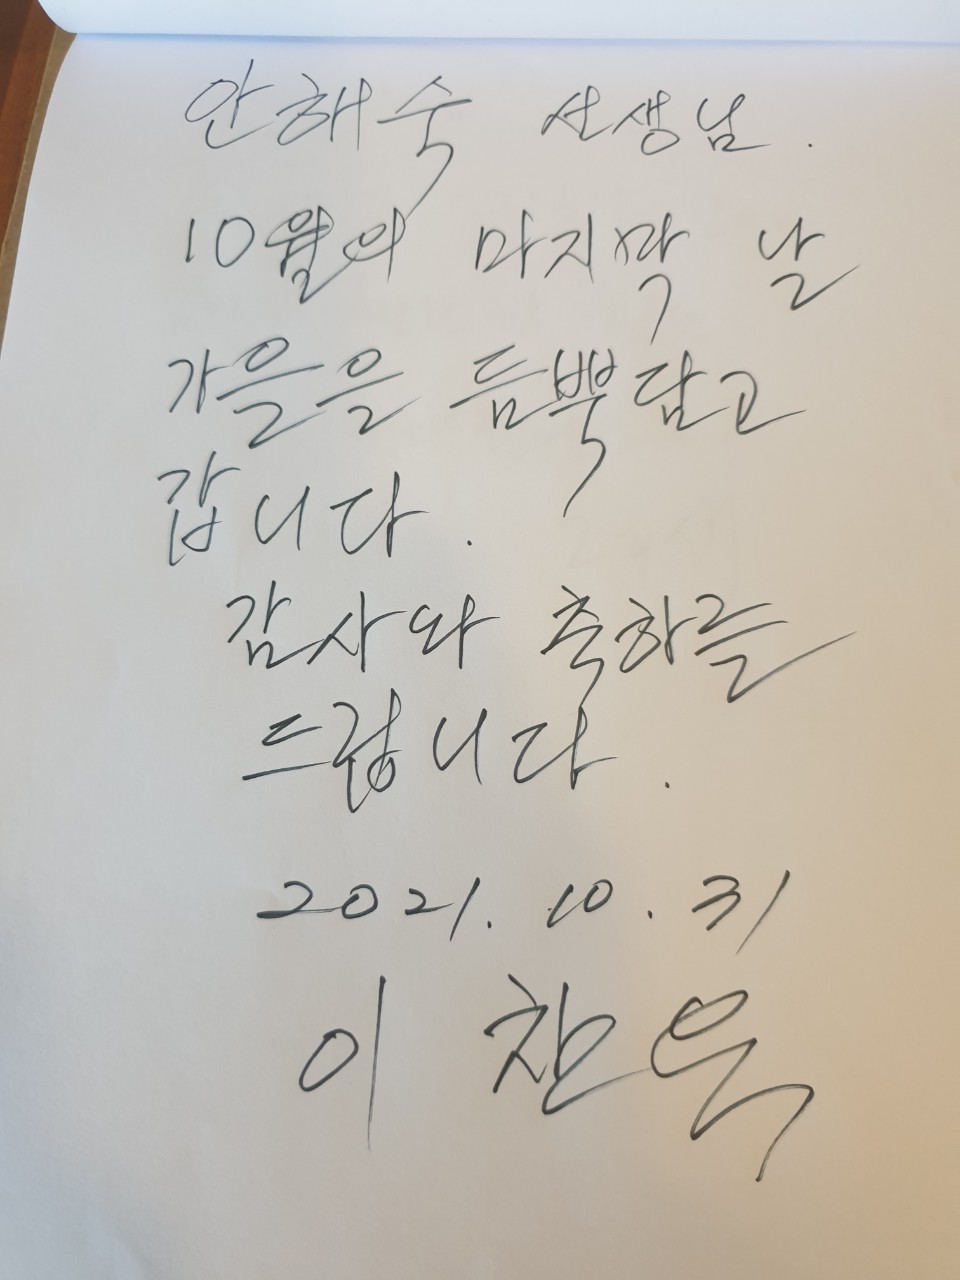 안해숙 선생님.
10월의 마지막 날
가을을 듬뿍 담고
갑니다.
감사와 축하를
드립니다.
2021. 10. 31
이 찬